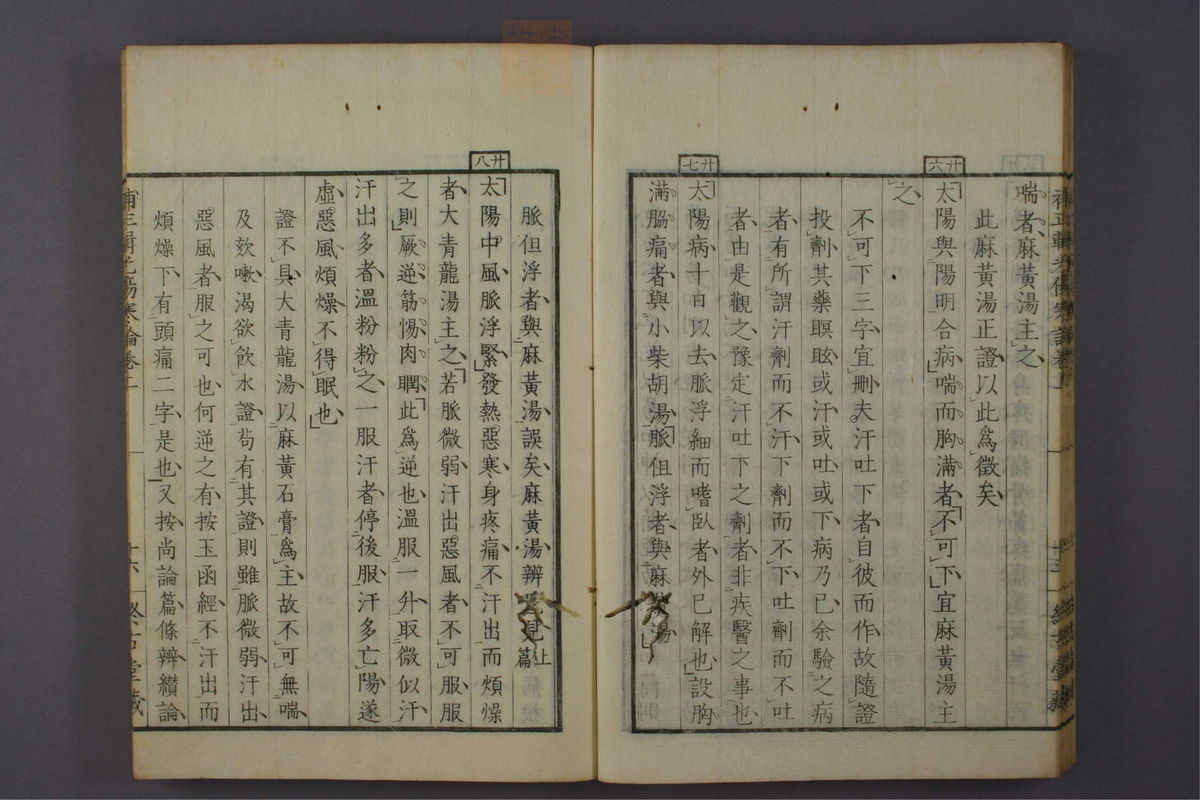 喘者麻黃湯主之
此麻黃湯正證以此爲徵矣
廿六
太陽與陽明合病喘而胸滿者不可下宜麻黃湯主
之
不可下三字宜刪夫汗吐下者自彼而作故隨證
投劑其藥瞑眩或汗或吐或下病乃已余驗之病
者有所謂汗劑而不汗下劑而不下吐劑而不吐
者由是觀之豫定汗吐下之劑者非疾醫之事也
廿七
太陽病十日以去脈浮細而嗜臥者外已解也設胸
滿脇痛者與小柴胡湯脈但浮者與麻黃湯
脈但浮者與麻黃湯誤矣麻黃湯辨見上篇
廿八
太陽中風脈浮緊發熱惡寒身疼痛不汗出而煩燥
者大青龍湯主之若脈微弱汗出惡風者不可服服
之則厥逆筋惕肉瞤此爲逆也溫服一升取微似汗
汗出多者溫粉粉之一服汗者停後服汗多亡陽遂
虛惡風煩燥不得眠也
證不具大青龍湯以麻黃石膏爲主故不可無喘
及欬嗽渴欲飲水證苟有其證則雖脈微弱汗出
惡風者服之可也何逆之有按玉函經不汗出而
煩燥下有頭痛二字是也又按尚論篇條辨纘論